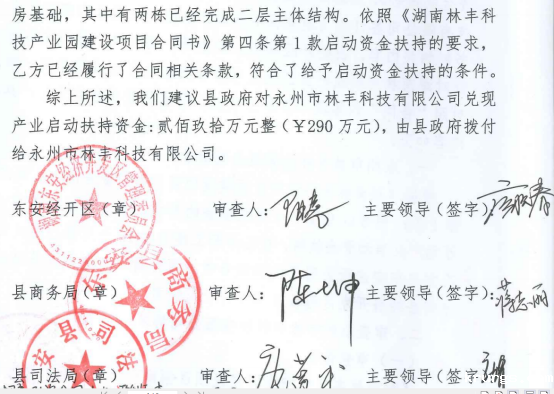 房基础，其中有两栋已经完成二层主体结构。依照《湖南林丰科
技产业园建设项目合同书》第四条第1款启动资金扶持的要求，
乙方已经履行了合同相关条款，符合了给予启动资金扶持的条件。
综上所述，我们建议县政府对永州市林丰科技有限公司兑现
产业启动扶持资金:贰佰玖拾万元整（￥290万元），由县政府拨付
给永州市林丰科技有限公司。
东安经开区（章） 审查人： 主要领导（签字）：
县商务局（章） 审查人：陈 坤 主要领导（签字）：蒋志丽
县司法局（章） 审查人： 主要领导（签字）：
东安经济开发区管理委员会
东安县商务局
安县司法